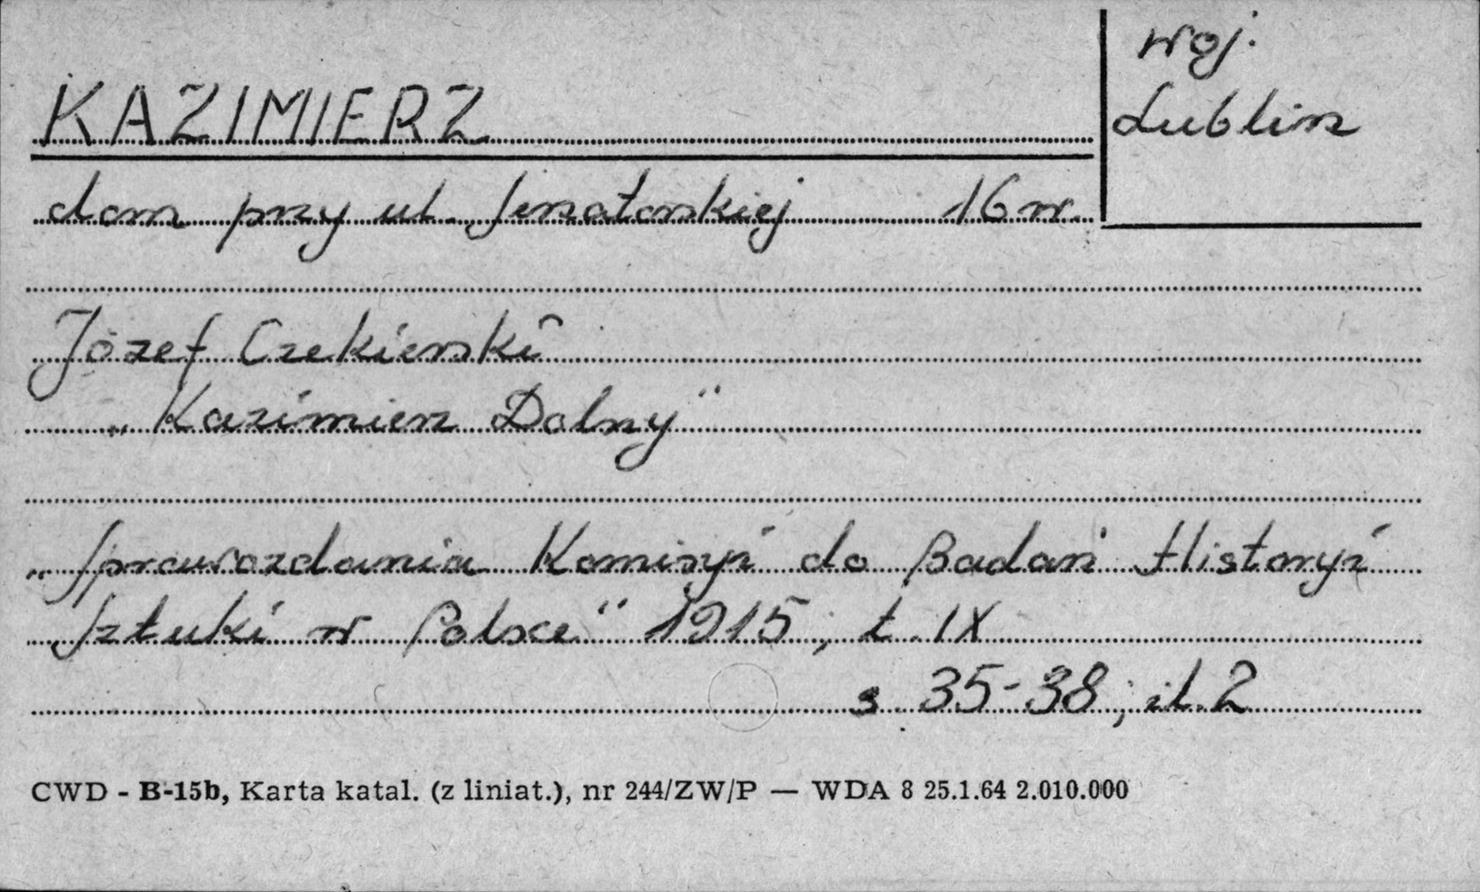 woj.
Lublin
KAZIMIERZ
dom przy ul. Senatorskiej 16 w.
Józef Czekierski
„Kazimierz Dolny"
„Sprawozdania Komisyi do Badań Historyi
Sztuki w Polsce" 1915, t. IX
s. 35-38, il. 2
CWD - B-15b, Karta katal. (z liniat.), nr 244/ZW/P — WDA 8 25.1.64 2.010.000